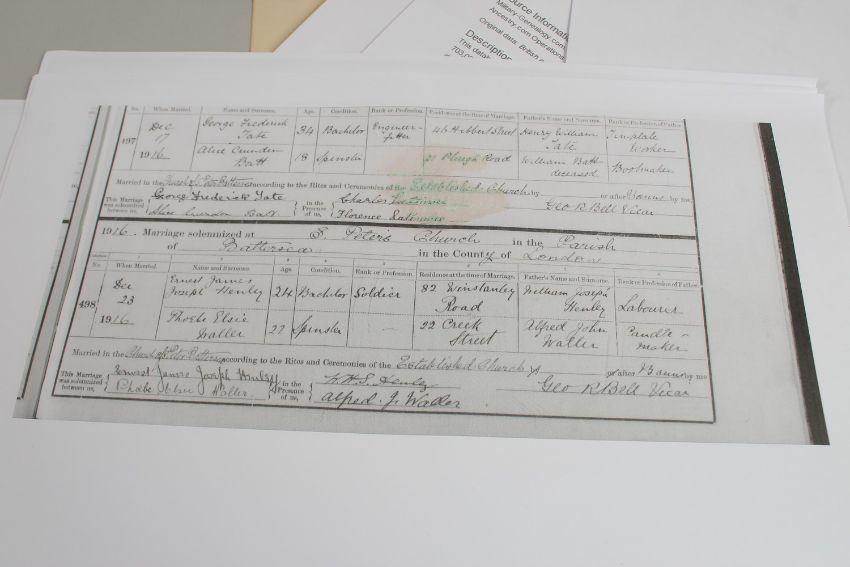 ource Informati
Military-Genealogy.com
Ancestry.com Operations
Original data: British
Description
This datab
No. When Married. Name and Surname. Age. Condition. Rank or Profession. Residence at the time of Marriage. Father's Name and Surname. Rank or Profession of Father.
497 Dec 17 1916 George Frederick Tate 34 Bachelor Engineer-fitter 46 Hibbert Street Henry William Tate Template Worker
Alice Batt 18 Spinster 22 Plough Road William Batt deceased Bookmaker
Married in the according to the Rites and Ceremonies of the Established Church by or after Banns by me,
This Marriage was solemnized between us, George Frederick Tate in the Presence of us, Charles Geo R Bell Vicar
Batt Florence
1916. Marriage solemnized at S. Peter's Church in the Parish
of Battersea in the County of London
No. When Married. Name and Surname Age Condition. Rank or Profession. Residence at the time of Marriage. Father's Name and Surname. Rank or Profession of Father.
498 Dec 23 1916 Ernest James Joseph Henley 24 Bachelor Soldier 82 Winstanley Road William Joseph Henley Labourer
Phoebe Elsie Waller 22 Spinster — 22 Creek Street Alfred John Waller Candle-maker
Married in the according to the Rites and Ceremonies of the Established Church by or after Banns by me
This Marriage was solemnized between us, Ernest James Joseph Henley in the Presence of us, Henley Geo R Bell Vicar
Phoebe Elsie Waller. Alfred J. Waller